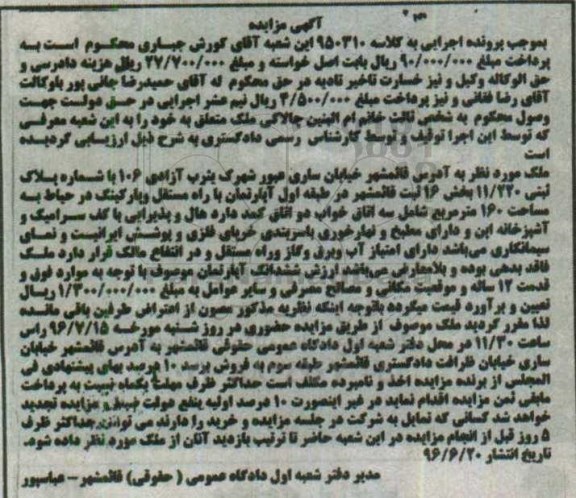 آگهی مزایده
بموجب پرونده اجرایی به کلاسه ۹۵۰۳۱۰ این شعبه آقای کورش جباری محکوم است به
پرداخت مبلغ ۹۰/۰۰۰/۰۰۰ ریال بابت اصل خواسته و مبلغ ۲۷/۷۰۰/۰۰۰ ریال هزینه دادرسی و
حق الوکاله وکیل و نیز خسارت تاخیر تادیه در حق محکوم له آقای حمیدرضا جانی پور باوکالت
آقای رضا فغانی و نیز پرداخت مبلغ ۴/۵۰۰/۰۰۰ ریال نیم عشر اجرایی در حق دولت جهت
وصول محکوم به شخص ثالث خانم ام البنین چالاکی ملک متعلق به خود را به این شعبه معرفی
که توسط این اجرا توقیف و توسط کارشناس رسمی دادگستری به شرح ذیل ارزیابی گردیده
است
ملک مورد نظر به آدرس قائمشهر خیابان ساری هبور شهرک یثرب آزادی ۱۰۶ با شماره پلاک
ثبتی ۱۱/۲۲۰ بخش ۱۶ ثبت قائمشهر در طبقه اول آپارتمان با راه مستقل وپارکینگ در حیاط به
مساحت ۱۶۰ مترمربع شامل سه اتاق خواب دو اتاق کمد دارد هال و پذیرایی با کف سرامیک و
آشپزخانه اپن و دارای مطبخ و نهارخوری باسربندی خرپای فلزی و پوشش ایرانیت و نمای
سیمانکاری می‌باشد دارای امتیاز آب وبرق وگاز وراه مستقل و در انتفاع مالک قرار دارد ملک
فاقد بدهی بوده و بلامعارض می‌باشد ارزش ششدانگ آپارتمان موصوف با توجه به موارد فوق و
قدمت ۱۲ ساله و موقعیت مکانی و مصالح مصرفی و سایر عوامل به مبلغ ۱/۳۰۰/۰۰۰/۰۰۰ ریال
تعیین و برآورد قیمت میگردد باتوجه اینکه نظریه مذکور مصون از اعتراض طرفین باقی مانده
لذا مقرر گردید ملک موصوف از طریق مزایده حضوری در روز شنبه مورخه ۹۶/۷/۱۵ راس
ساعت ۱۱/۳۰ در محل دفتر شعبه اول دادگاه عمومی حقوقی قائمشهر به آدرس قائمشهر خیابان
ساری خیابان ظرافت دادگستری قائمشهر طبقه سوم به فروش برسد ۱۰ درصد بهای پیشنهادی فی
المجلس از برنده مزایده اخذ و نامبرده مکلف است حداکثر ظرف مهلت یکماه نسبت به پرداخت
مابقی ثمن مزایده اقدام نماید در غیر اینصورت ۱۰ درصد اولیه بنفع دولت ضبط و مزایده تجدید
خواهد شد کسانی که تمایل به شرکت در جلسه مزایده و خرید را دارند می توانند حداکثر ظرف
۵ روز قبل از انجام مزایده در این شعبه حاضر تا ترتیب بازدید آنان از ملک مورد نظر داده شود.
تاریخ انتشار ۹۶/۶/۲۰
مدیر دفتر شعبه اول دادگاه عمومی ( حقوقی) قائمشهر – عباسپور